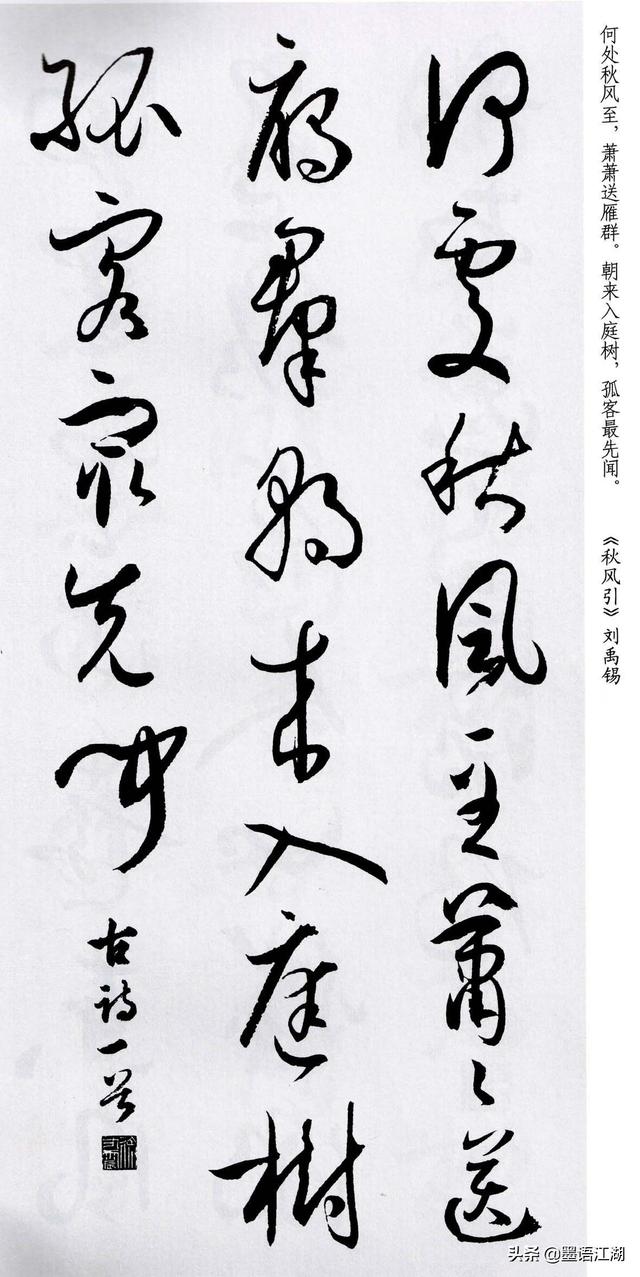 何处秋风至，萧萧送雁群。朝来入庭树，孤客最先闻。 《秋风引》刘禹锡
何處秋風至蕭〻送
雁羣朝来入庭樹
孤客最先聞
古诗一首
头条 @墨语江湖